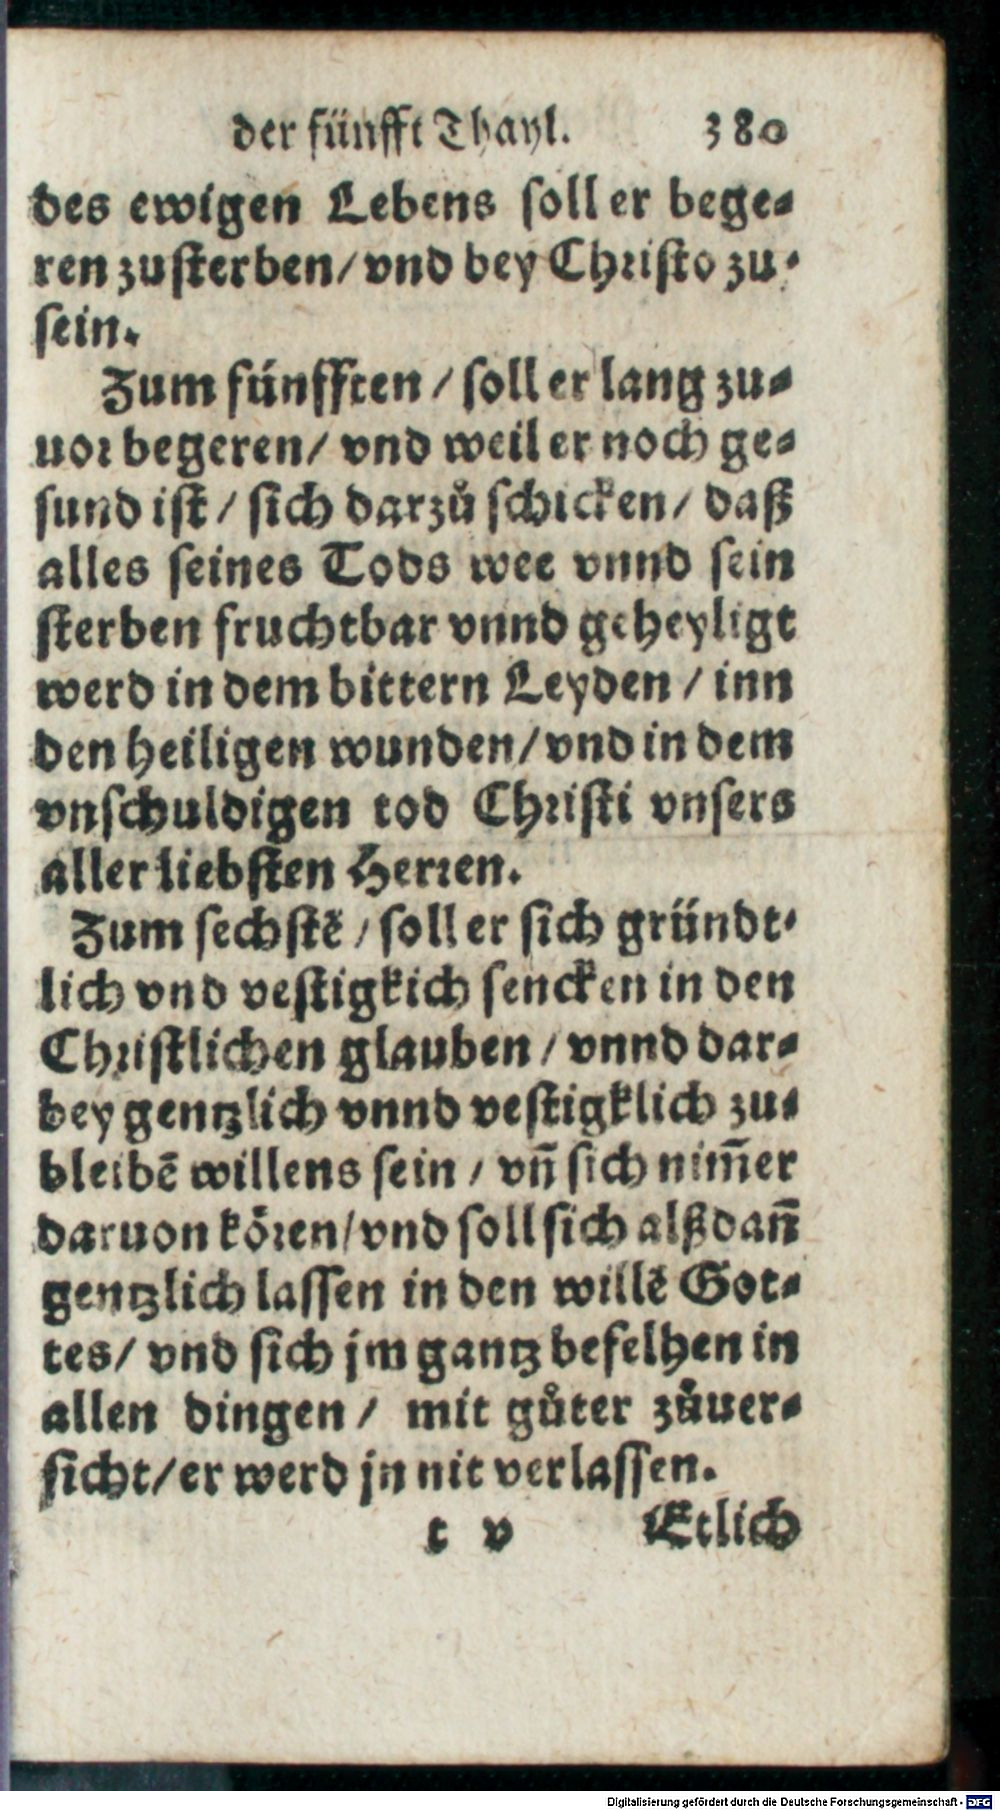 der fünfft Thayl. 380
des ewigen Lebens soll er bege-
ren zusterben/ vnd bey Christo zu-
sein.
Zum fünfften / soll er lang zu-
uor begeren/ vnd weil er noch ge-
sund ist / sich darzů schicken/ daß
alles seines Tods wee vnnd sein
sterben fruchtbar vnnd geheyligt
werd in dem bittern Leyden / inn
den heiligen wunden/ vnd in dem
vnschuldigen tod Christi vnsers
aller liebsten Herren.
Zum sechstẽ / soll er sich gründt-
lich vnd vestigkich sencken in den
Christlichen glauben / vnnd dar-
bey gentzlich vnnd vestigklich zu-
bleibẽ willens sein / vñ sich nim̃er
daruon kören/ vnd soll sich alßdañ
gentzlich lassen in den willẽ Got-
tes/ vnd sich jm gantz befelhen in
allen dingen / mit gůter zůuer-
sicht/ er werd jn nit verlassen.
t v Etlich
Digitalisierung gefördert durch die Deutsche Forschungsgemeinschaft - DFG